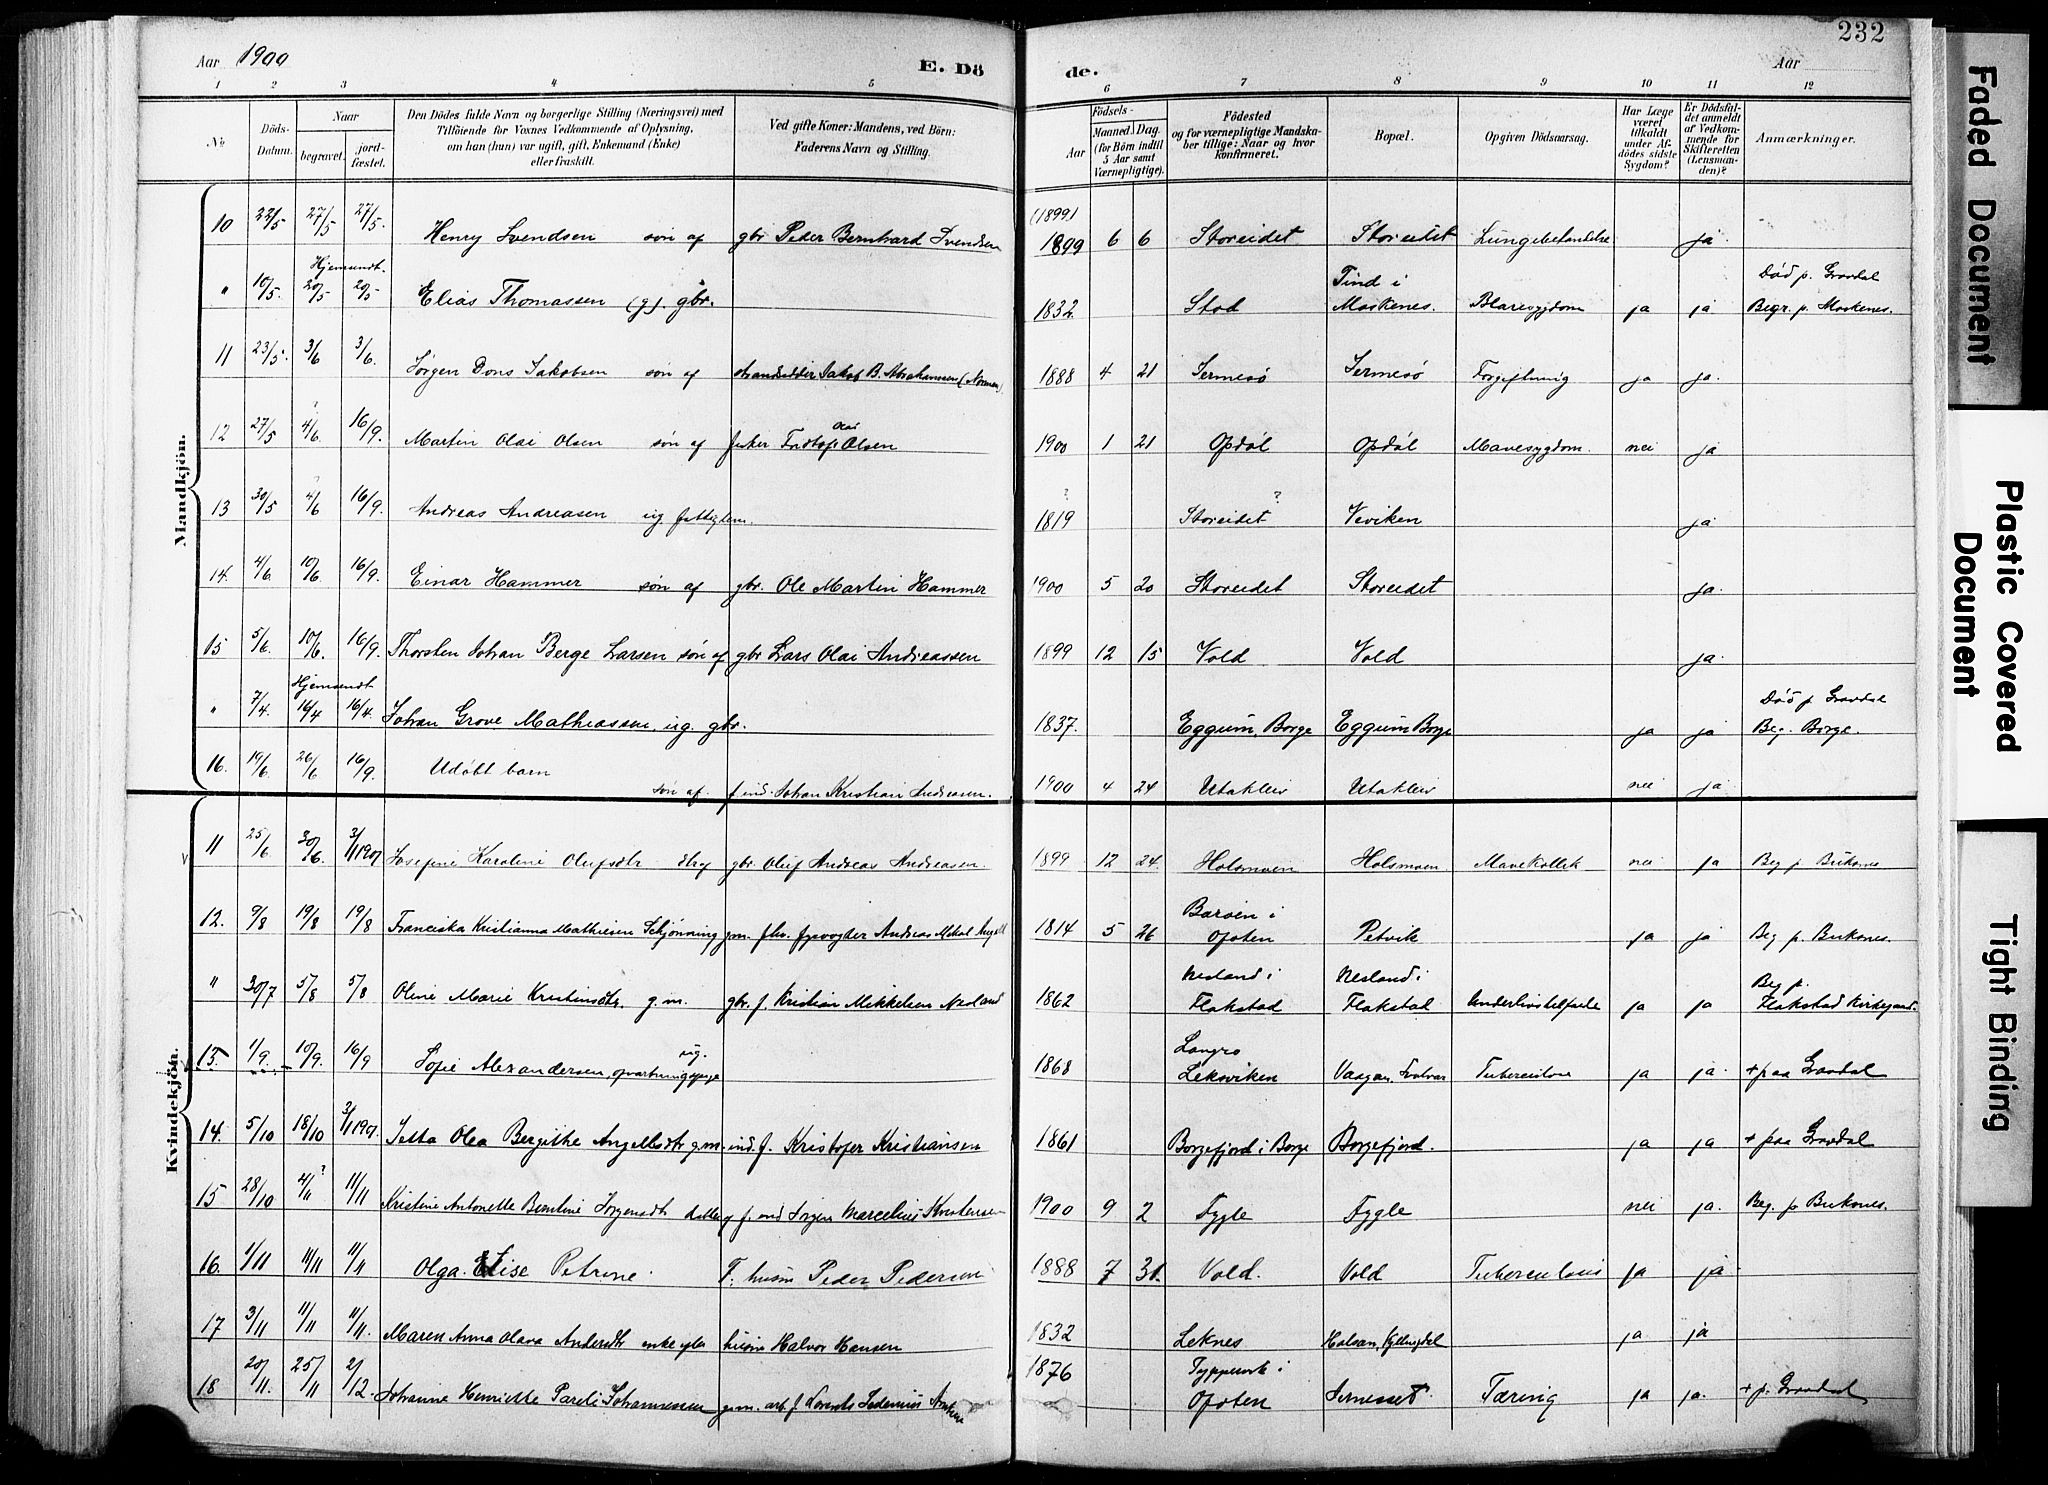 232
Aar 1900
E. Dö
de.
Aar
1 2 3 4 5 6 7 8 9 10 11 12
No
Döds-Datum.
Naar
begravet.
jordfæstet.
Den Dödes fulde Navn og borgerlige Stilling (Næringsvei) med
Tilföiende for Voxnes Vedkommende af Oplysning,
om han (hun) var ugift, gift, Enkemand (Enke)
eller fraskilt.
Ved gifte Koner: Mandens, ved Börn:
Faderens Navn og Stilling.
Födsels-
Aar
Maaned. Dag.
(for Börn indtil
5 Aar samt
Værnepligtige).
Födested
og for værnepligtige Mandska-
ber tillige: Naar og hvor
konfirmeret.
Bopæl.
Opgiven Dödsaarsag.
Har Læge
været
tilkaldt
under Af-
dödes sidste
Sygdom?
Er Dödsfal-
det anmeldt
af Vedkom-
mende for
Skifteretten
(Lensman-
den)?
Anmærkninger.
Mandkjön.
10 22/5 27/5 27/5. Henry Svendsen søn af gbr Peder Bernhard Svendsen (1899) 1899 6 6 Storeidet Storeidet Lungebetændelse ja
" 10/5. Hjemsendt. 20/5 20/5 Elias Thomassen (g). gbr. 1832 Stod Tind i Moskenes. Blæresygdom ja ja Död p. Gravdal Begr. p. Moskenes.
11 23/5. 3/6 3/6. Jørgen Dons Jakobsen søn af strandsidder Jakob B. Abrahamsen 1888 4 21 Sermesø Sermesø Forgiftning ja ja.
12 27/5 ? 4/6. 16/9. Martin Olai Olsen søn af fisker Olai Olsen 1900 1 21 Opdøl Opdøl Mavesygdom. nei ja
13 30/5 ? 4/6 16/9. Andreas Andreasen ug fattiglem ? 1819 Storeidet ? Veviken ja
14. 4/6. 10/6. 16/9. Einar Hammer søn af gbr. Ole Martin Hammer 1900 5 20 Storeidet Storeidet ja.
15 5/6. 10/6. 16/9. Thorsten Johan Berge Larsen søn af gbr Lars Olai Andreassen 1899 12 15 Vold Vold ja.
" 7/4. Hjemsendt 16/4 16/4. Johan Grove Mathiassen, ug. gbr. 1837. Eggum, Borge Eggum Borge ja ja Död p Gravdal Beg. Borge.
16. 19/6. 26/6 16/9. Udøbt barn søn af f. ind. Johan Kristian Andreasen. 1900 4 24 Utakleiv Utakleiv nei ja
Kvindekjön.
11 25/6 30/6. 3/1 1901 Josefine Karoline Olufsdtr dtr af gbr Oluf Andreas Andreasen. 1899 12 24. Holsmoen Holsmoen. Mavekollik nei ja Beg p Buksnes
12. 9/8 19/8 19/8 Franciska Kristianna Mathiesen Schjønning gm. Andreas 1814 5 26 Barøen i Ofoten Petvik ja ja Beg p. Buksnes.
" 30/7 5/8 5/8 Oline Marie Kristinsdtr. g.m. gbr. f. Kristian Mikkelsen Nesland 1862 Nesland i Flakstad Nesland i Flakstad Underlivstilfælde ja ja Beg p. Flakstad Kirkegaard.
13. 1/9. 10/9. 16/9 Sofie Alexandersen, opvartningspige ug. 1868 Leksviken Vaagan, Svolvær Tuberculose ja ja. + paa Gravdal
14. 5/10 18/10 3/1 1901. Jetta Olea Bergithe Angellsdtr g.m. ind. f. Kristofer Kristiansen 1861 Borgefjord i Borge Borgefjord. ja ja + paa Gravdal
15 28/10 4/11 ? 11/11 Kristine Antonette Bentine Jørgensdtr datter af f. ind Jørgen Marcelius Kristensen 1900 9 2 Fygle Fygle nei ja. Beg. p Buksnes.
16. 1/11 11/11 11/11 Olga Elise Petrine. F. husm Peder Pedersen 1888 7 31. Vold. Vold Tuberculosis ja ja
17 3/11 11/11 11/11. Maren Anna Olava Andersdtr enke efter husm Halvor Hansen 1832 Leknes ja ja
18 20/11. 25/11 2/12. Johanne Henriette Pareli Johannessen g.m. arb. f. 1876 i Ofoten Sernesset. Tæring ja ja. + p. Gravdal
Faded Document
Plastic Covered Document
Tight Binding